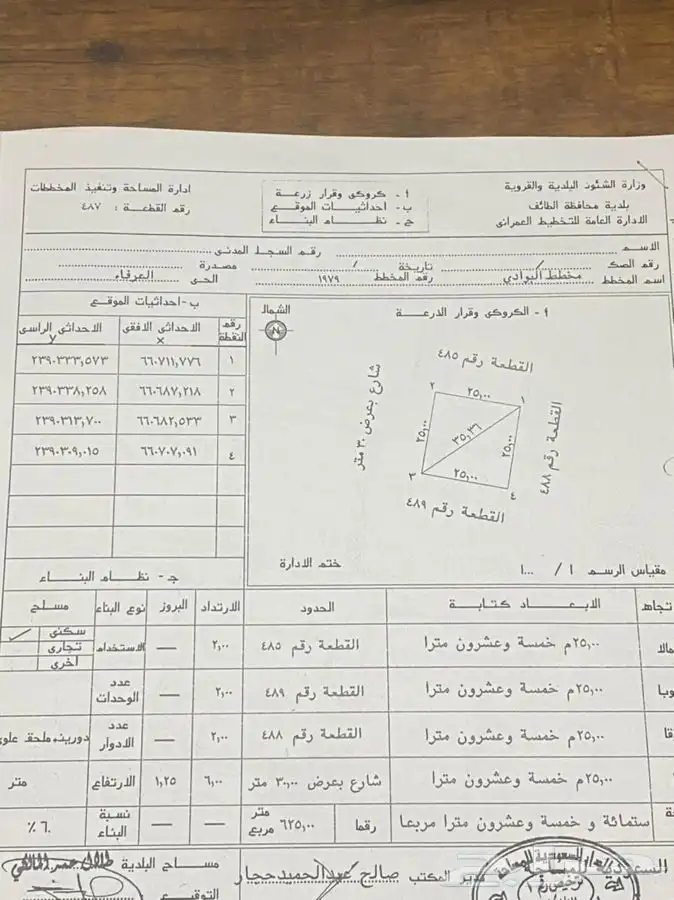 وزارة الشئون البلدية والقروية
بلدية محافظة الطائف
الادارة العامة للتخطيط العمرانى
أ - كروكى وقرار زرعة
ب - احداثيات الموقع
ج - نظام البناء
ادارة المساحة وتنفيذ المخططات
رقم القطعة : ٤٨٧
الاسم
رقم السجل المدنى
رقم الصك / تاريخة / مصدرة
اسم المخطط مخطط البوادي رقم المخطط ١٩٧٩ الحى العرفاء
أ - الكروكى وقرار الذرعة
الشمال
N
القطعة رقم ٤٨٥
شارع بعرض ٣٠ متر
القطعة رقم ٤٨٨
القطعة رقم ٤٨٩
١
٢
٣
٤
٢٥,٠٠
٢٥,٠٠
٣٥,٣٦
٢٥,٠٠
٢٥,٠٠
ختم الادارة
مقياس الرسم ١ / ١٠٠٠
ب - احداثيات الموقع
رقم النقطة الاحداثى الافقى x الاحداثى الراسى y
١ ٦٦٠٧١١,٧٧٦ ٢٣٩٠٣٣٣,٥٧٣
٢ ٦٦٠٦٨٧,٢١٨ ٢٣٩٠٣٣٨,٢٥٨
٣ ٦٦٠٦٨٢,٥٣٣ ٢٣٩٠٣١٣,٧٠٠
٤ ٦٦٠٧٠٧,٠٩١ ٢٣٩٠٣٠٩,٠١٥
ج - نظام البناء
تجاه الابعاد كتابة الحدود الارتداد البروز نوع البناء مسلح
٢٥,٠٠م خمسة وعشرون مترا القطعة رقم ٤٨٥ ٢,٠٠ — الاستخدام سكنى ✓
تجارى
اخرى
٢٥,٠٠م خمسة وعشرون مترا القطعة رقم ٤٨٩ ٢,٠٠ — عدد الوحدات
٢٥,٠٠م خمسة وعشرون مترا القطعة رقم ٤٨٨ ٢,٠٠ — عدد الادوار دورين+ملحق علوى
٢٥,٠٠م خمسة وعشرون مترا شارع بعرض ٣٠,٠٠ متر ٦,٠٠ ١,٢٥ الارتفاع متر
ستمائة و خمسة وعشرون مترا مربعا رقما ٦٢٥,٠٠ متر مربع — — نسبة البناء ٦٠ ٪
مدير المكتب صالح عبدالحميد حجار
مساح البلدية طلال عمر المالكي
التوقيع
ترخيص رقم